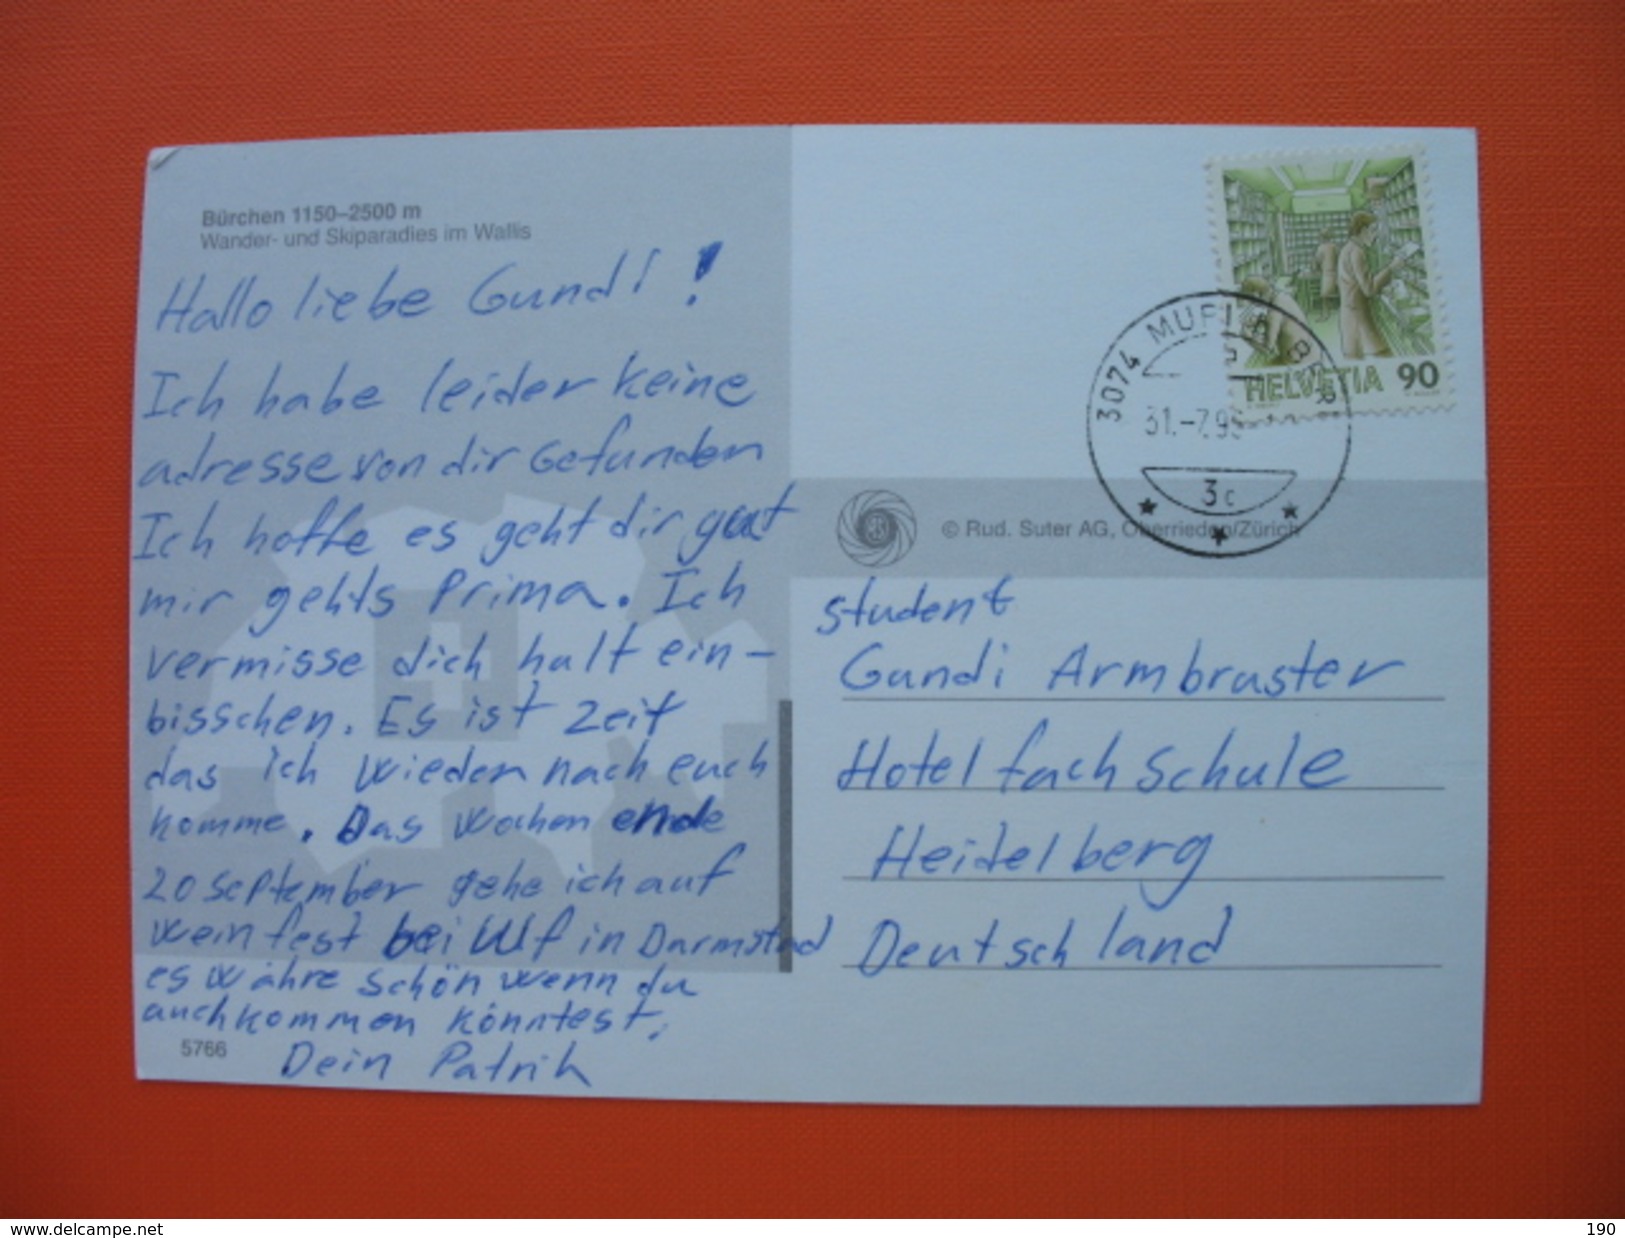 Bürchen 1150–2500 m
Wander- und Skiparadies im Wallis
Hallo liebe Gundi!
Ich habe leider keine
adresse von dir Gefunden
Ich hoffe es geht dir gut
mir gehts Prima. Ich
vermisse dich halt ein-
bisschen. Es ist Zeit
das ich wieder nach euch
komme. Das Wochen ende
20 september gehe ich auf
Weinfest bei Ulf in Darmstad
es währe schön wenn du
auch kommen könntest.
Dein Patrik
5766
HELVETIA 90
3074 MURI B. BERN
31.-7.9
3c
© Rud. Suter AG, Oberrieden/Zürich
student
Gundi Armbruster
Hotel fach schule
Heidelberg
Deutschland
www.delcampe.net
190